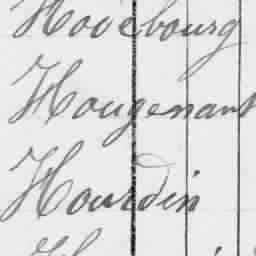 Hoddebourg
Hougenant
Hourdin